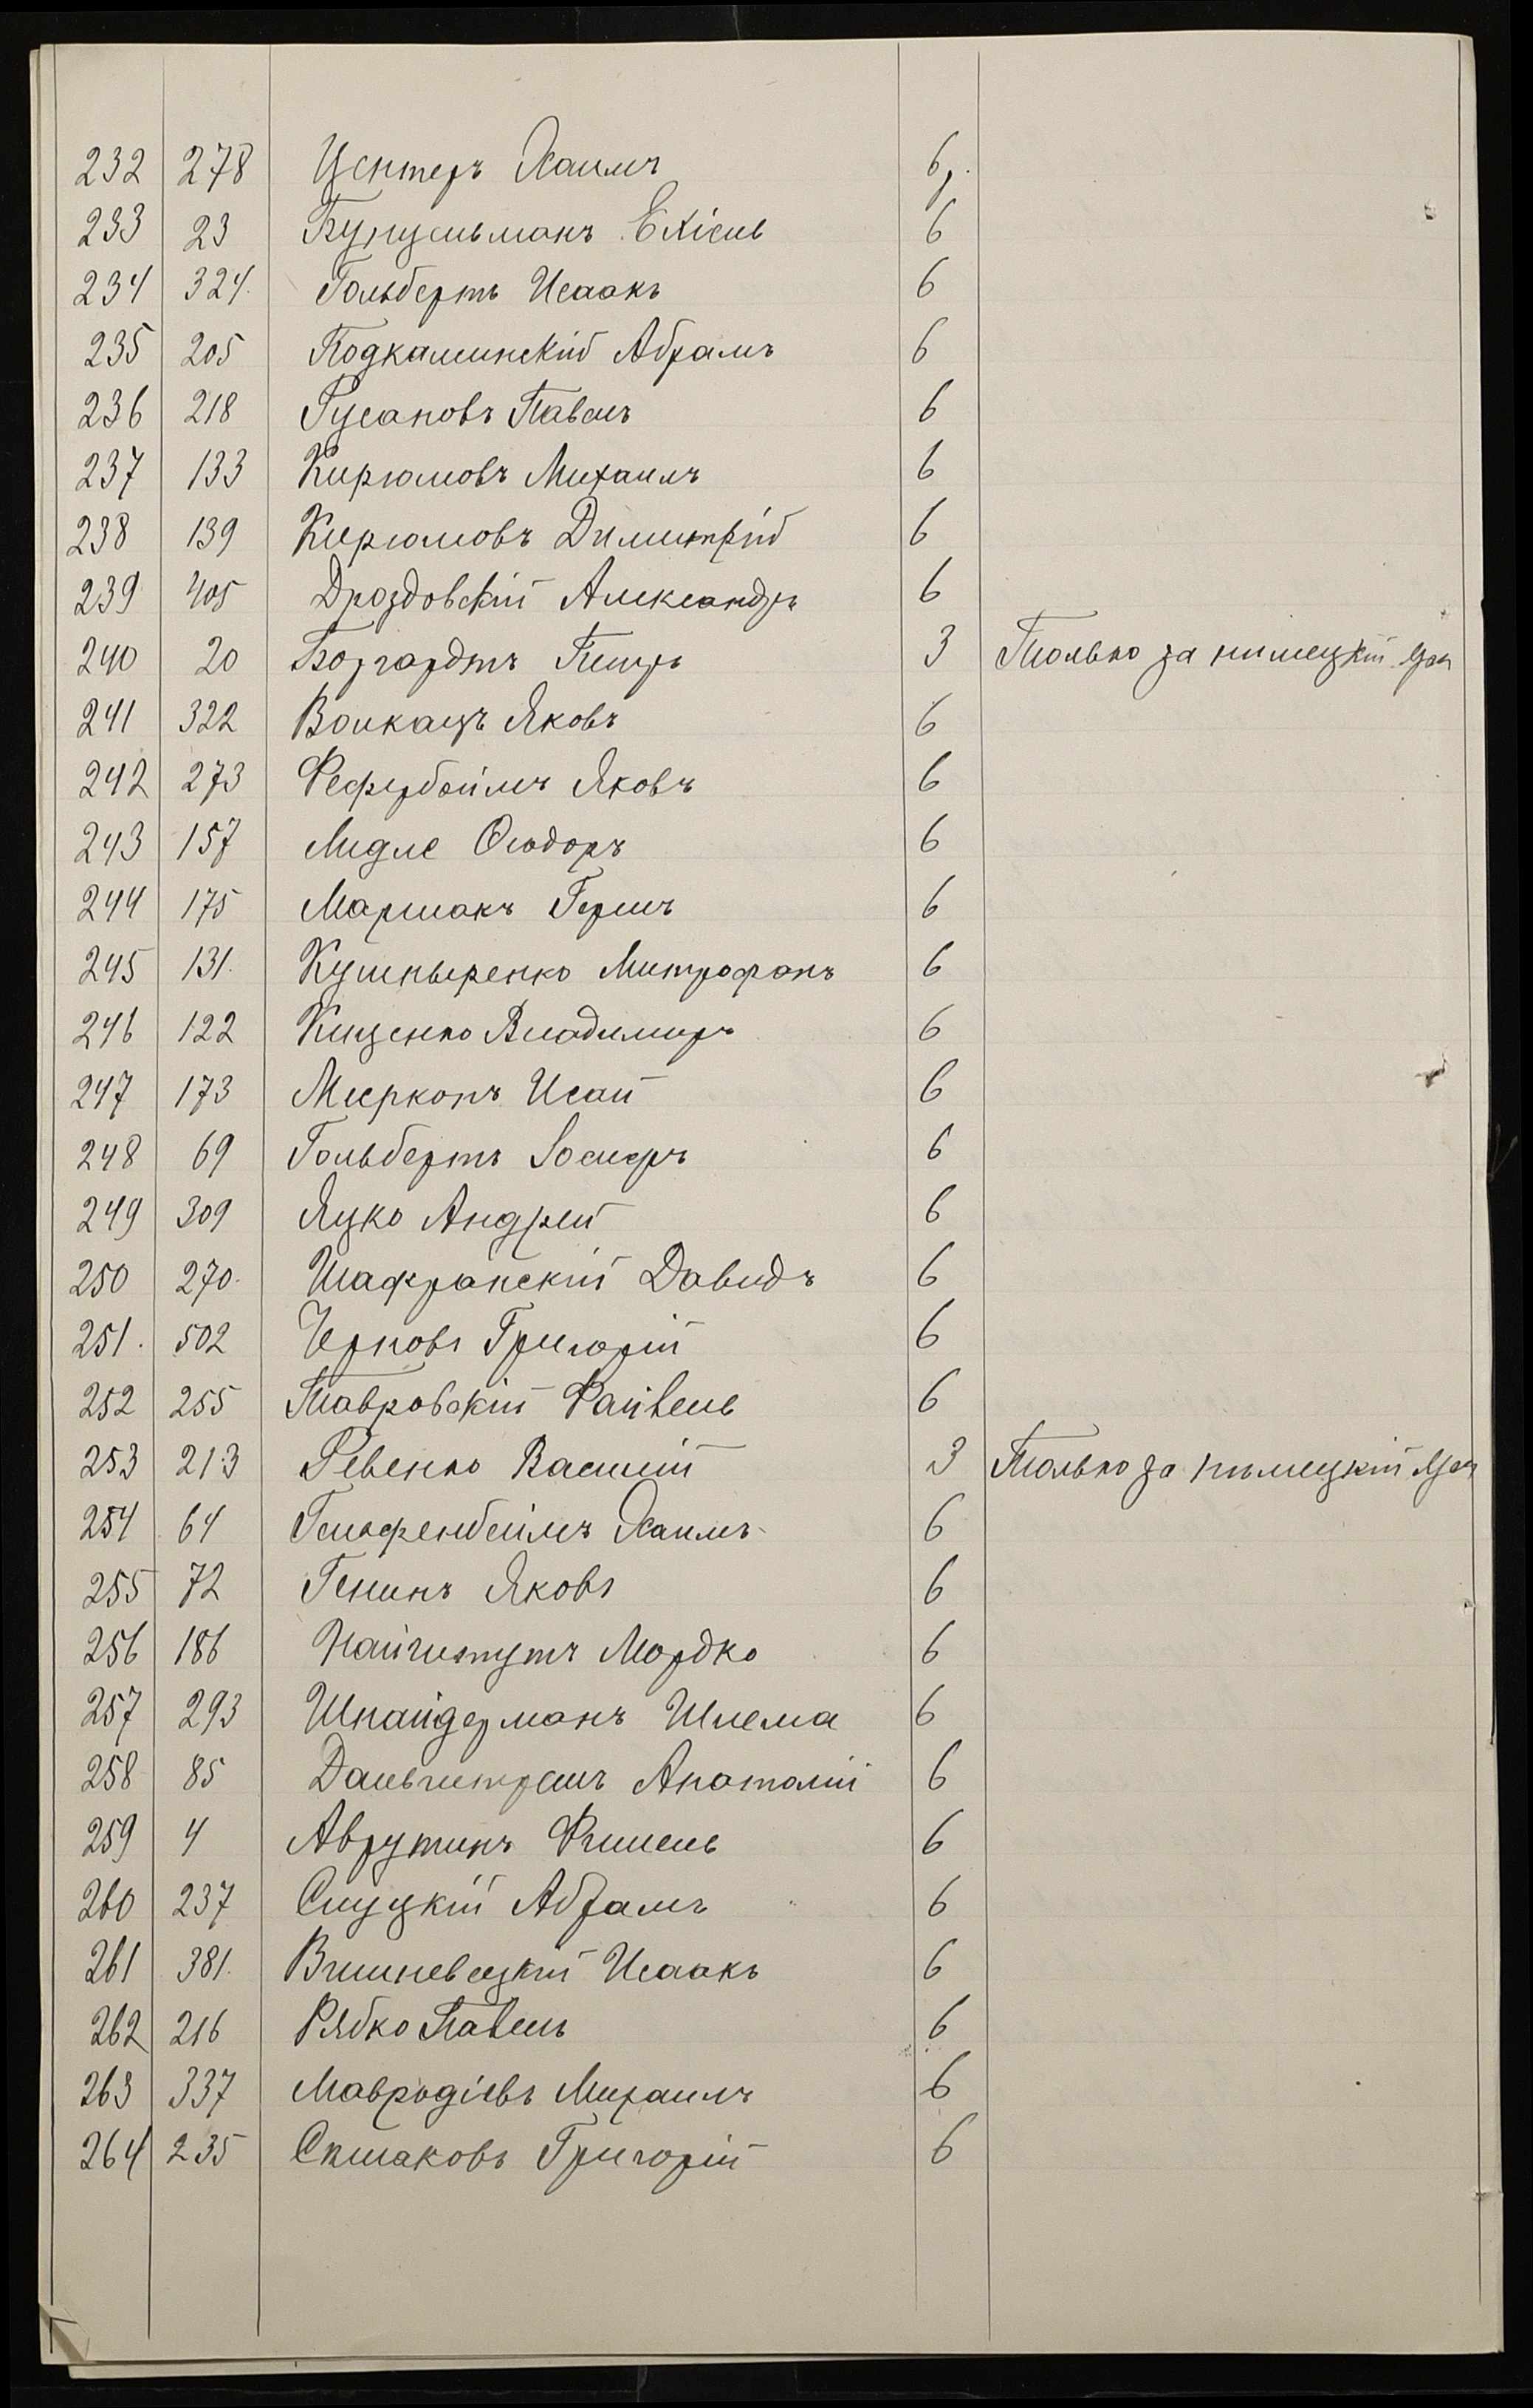 232 278 Центеръ Хаимъ 6 р.
233 23 Екіель 6
234 324. Гольбертъ Исаакъ 6
235 205 Подкаминскій Абрамъ 6
236 218 Русановъ Павелъ 6
237 133 Кирюмовъ Михаилъ 6
238 139 Кирюмовъ Димитрій 6
239 405 Дроздовскій Александръ 6
240 20 Боргардтъ Петръ 3 Только за нѣмецкій яз.
241 322 Волкацъ Яковъ 6
242 273 Фефербоймъ Яковъ 6
243 157 Лидле Ѳеодоръ 6
244 175 Маршакъ Гершъ 6
245 131. Кушныренко Митрофанъ 6
246 122 Кищенко Владимиръ 6
247 173 Меерконъ Исай 6
248 69 Гольбертъ Іосифъ 6
249 309 Яцко Андрей 6
250 270. Шафранскій Давидъ 6
251. 502 Черновъ Григорій 6
252 255 Тавровскій Файвель 6
253 213 Ревенко Василій 3 Только за нѣмецкій яз.
254 64 Гельфенбеймъ Хаимъ 6
255 72 Генинъ Яковъ 6
256 186 Мордко 6
257 293 Шнайдерманъ Шлема 6
258 85 Анатолій 6
259 4 Аврутинъ Фишель 6
260 237 Слуцкій Абрамъ 6
261 381. Вишневецкій Исаакъ 6
262 216 Рябко Павелъ 6
263 337 Мавродіевъ Михаилъ 6
264 235 Григорій 6